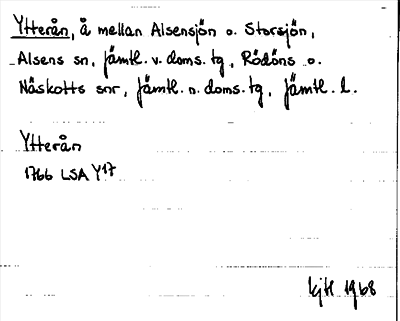 Ytterån, å mellan Alsensjön o. Storsjön,
Alsens sn, Jämtl. v. doms. tg, Rödöns o.
Näskotts snr, Jämtl. n. doms. tg, Jämtl. l.
Ytterån
1766 LSA Y17
kjtl 1968